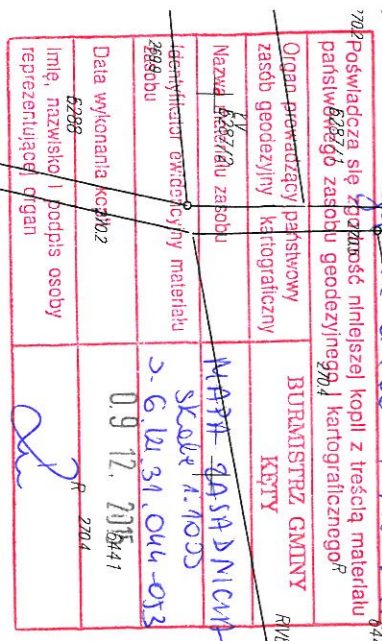 Poświadcza się zgodność niniejszej kopii z treścią materiału
państwowego zasobu geodezyjnego i kartograficznego
Organ prowadzący państwowy
zasób geodezyjny i kartograficzny
BURMISTRZ GMINY
KĘTY
Nazwa materiału zasobu
MAPA ZASADNICZA
skala 1:1000
Identyfikator ewidencyjny materiału
zasobu
6.121.31.044-053
Data wykonania kopii
09. 12. 2015
Imię, nazwisko i podpis osoby
reprezentującej organ
270.2
6287/1
270.4
R
6287/2
269.9
270.2
6288
6441
R
270.4